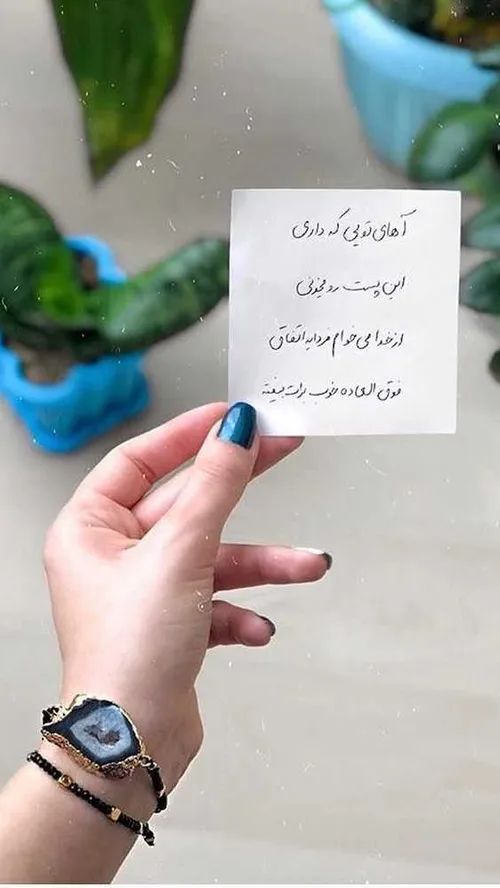 آهای تویی که داری
این پست رو میخونی
از خدا می خوام فردا یه اتفاق
فوق العاده خوب برات بیفته